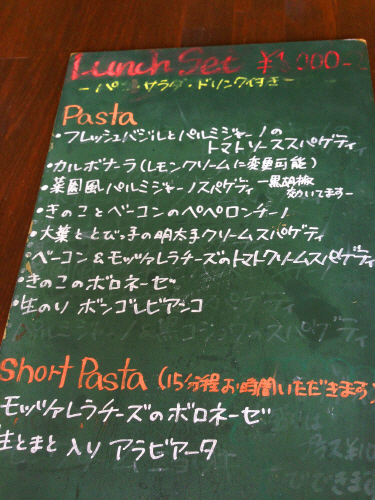 Lunch Set ¥1,000-
-パン・サラダ・ドリンク付き-
Pasta
・フレッシュバジルとパルミジャーノの
トマトソーススパゲティ
・カルボナーラ(レモンクリームに変更可能)
・菜園風パルミジャーノスパゲティ -黒胡椒
効いてます-
・きのことベーコンのペペロンチーノ
・大葉ととびっ子の明太子クリームスパゲティ
・ベーコン&モッツァレラチーズのトマトクリームスパゲティ
・きのこのボロネーゼ
・生のり ボンゴレビアンコ
Short Pasta (15分程お時間いただきます)
モッツァレラチーズのボロネーゼ
生とまと入り アラビアータ